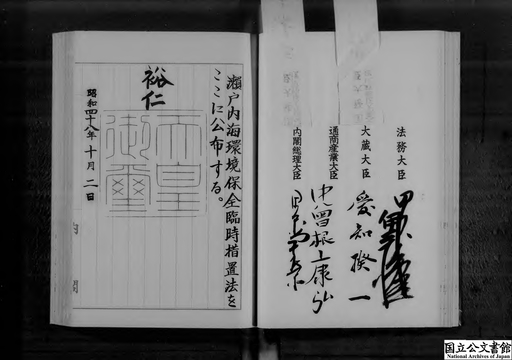 法務大臣
大蔵大臣
愛知揆一
通商産業大臣
中曾根康弘
内閣総理大臣
瀬戸内海環境保全臨時措置法を
ここに公布する。
裕仁
天皇
御璽
昭和四十八年十月二日
国立公文書館
National Archives of Japan